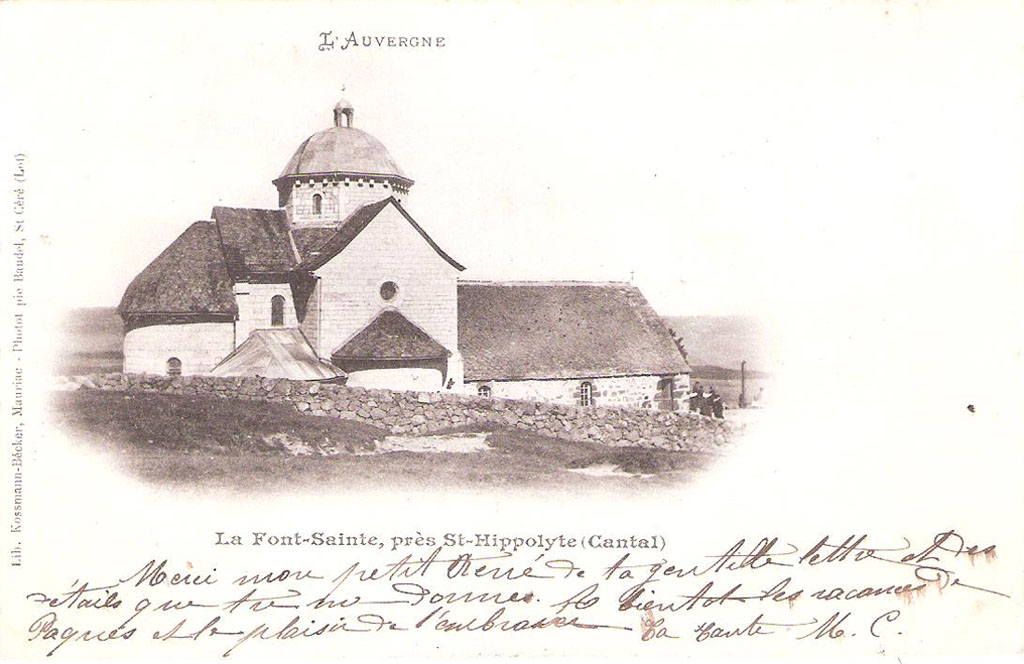 L'AUVERGNE
Lib. Kossmann-Bécker, Mauriac - Photot pie Baudel, St Céré (Lot)
La Font-Sainte, près St-Hippolyte (Cantal)
Merci mon petit René de ta gentille lettre et des
détails que tu me donnes. A bientôt les vacances de
Pâques et le plaisir de t'embrasser La tante M. C.